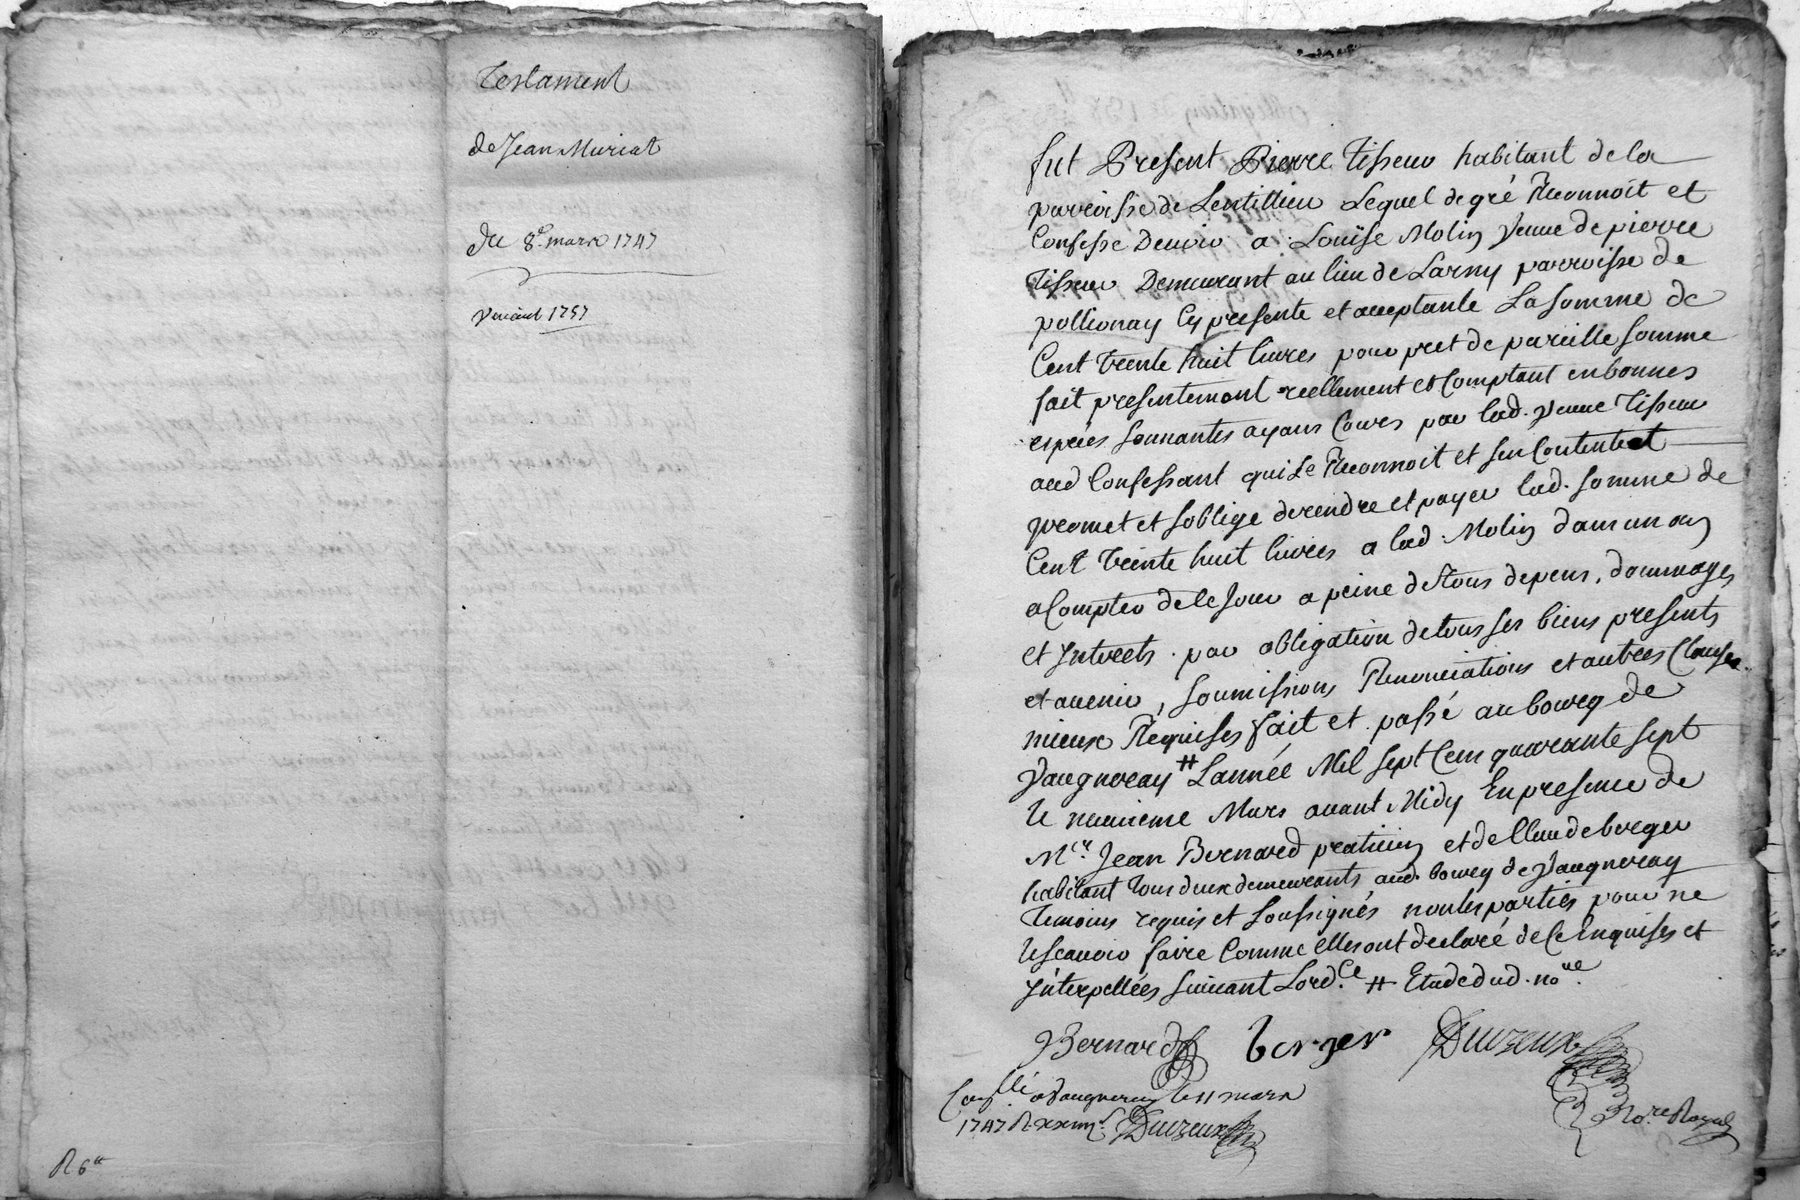 Testament
de Jean Muriat
du 8e. mars 1747
R 6tt
fut Present Pierre Tisseur habitant de la
parroisse de Lentillieu Lequel de gré Reconnoit et
Confesse Devoir a Louise Molin veuve de pierre
Tisseur Demeurant au lieu de Larny parroisse de
pollionay Cy presente et acceptante La somme de
Cent trente huit livres pour pret de pareille somme
fait presentement reellement et Comptant en bonnes
especes sonnantes ayans Cours par lad. veuve Tisseur
aud Confessant qui Le Reconnoit et sen Contente et
promet et soblige de rendre et payer lad. somme de
Cent trente huit livres a lad. Molin dans un an
a Compter de ce Jour a peine de tous depens, dommages
et Interets. par obligation de tous ses biens presents
et avenir, soumissions Renonciations et autres Clauses
mieux Requises fait et passé au bourg de
Vaugneray # Lannée Mil sept Cem quarante sept
le neuvieme Mars avant Midy En presence de
Mer. Jean Bernard praticien et de Claude berger
habitant tous deux demeurants aud. bourg de Vaugneray
Temoins requis et soussignés non les parties pour ne
le scavoir faire Comme elles ont declaré de Ce Enquises et
Interpellées suivant Lord.ce # Etude dud. nore.
Bernard berger Duvzeux
No.re Royal
Conllé a Vaugneray le 11 mars
1747 R xxiiijs. Duvzeux